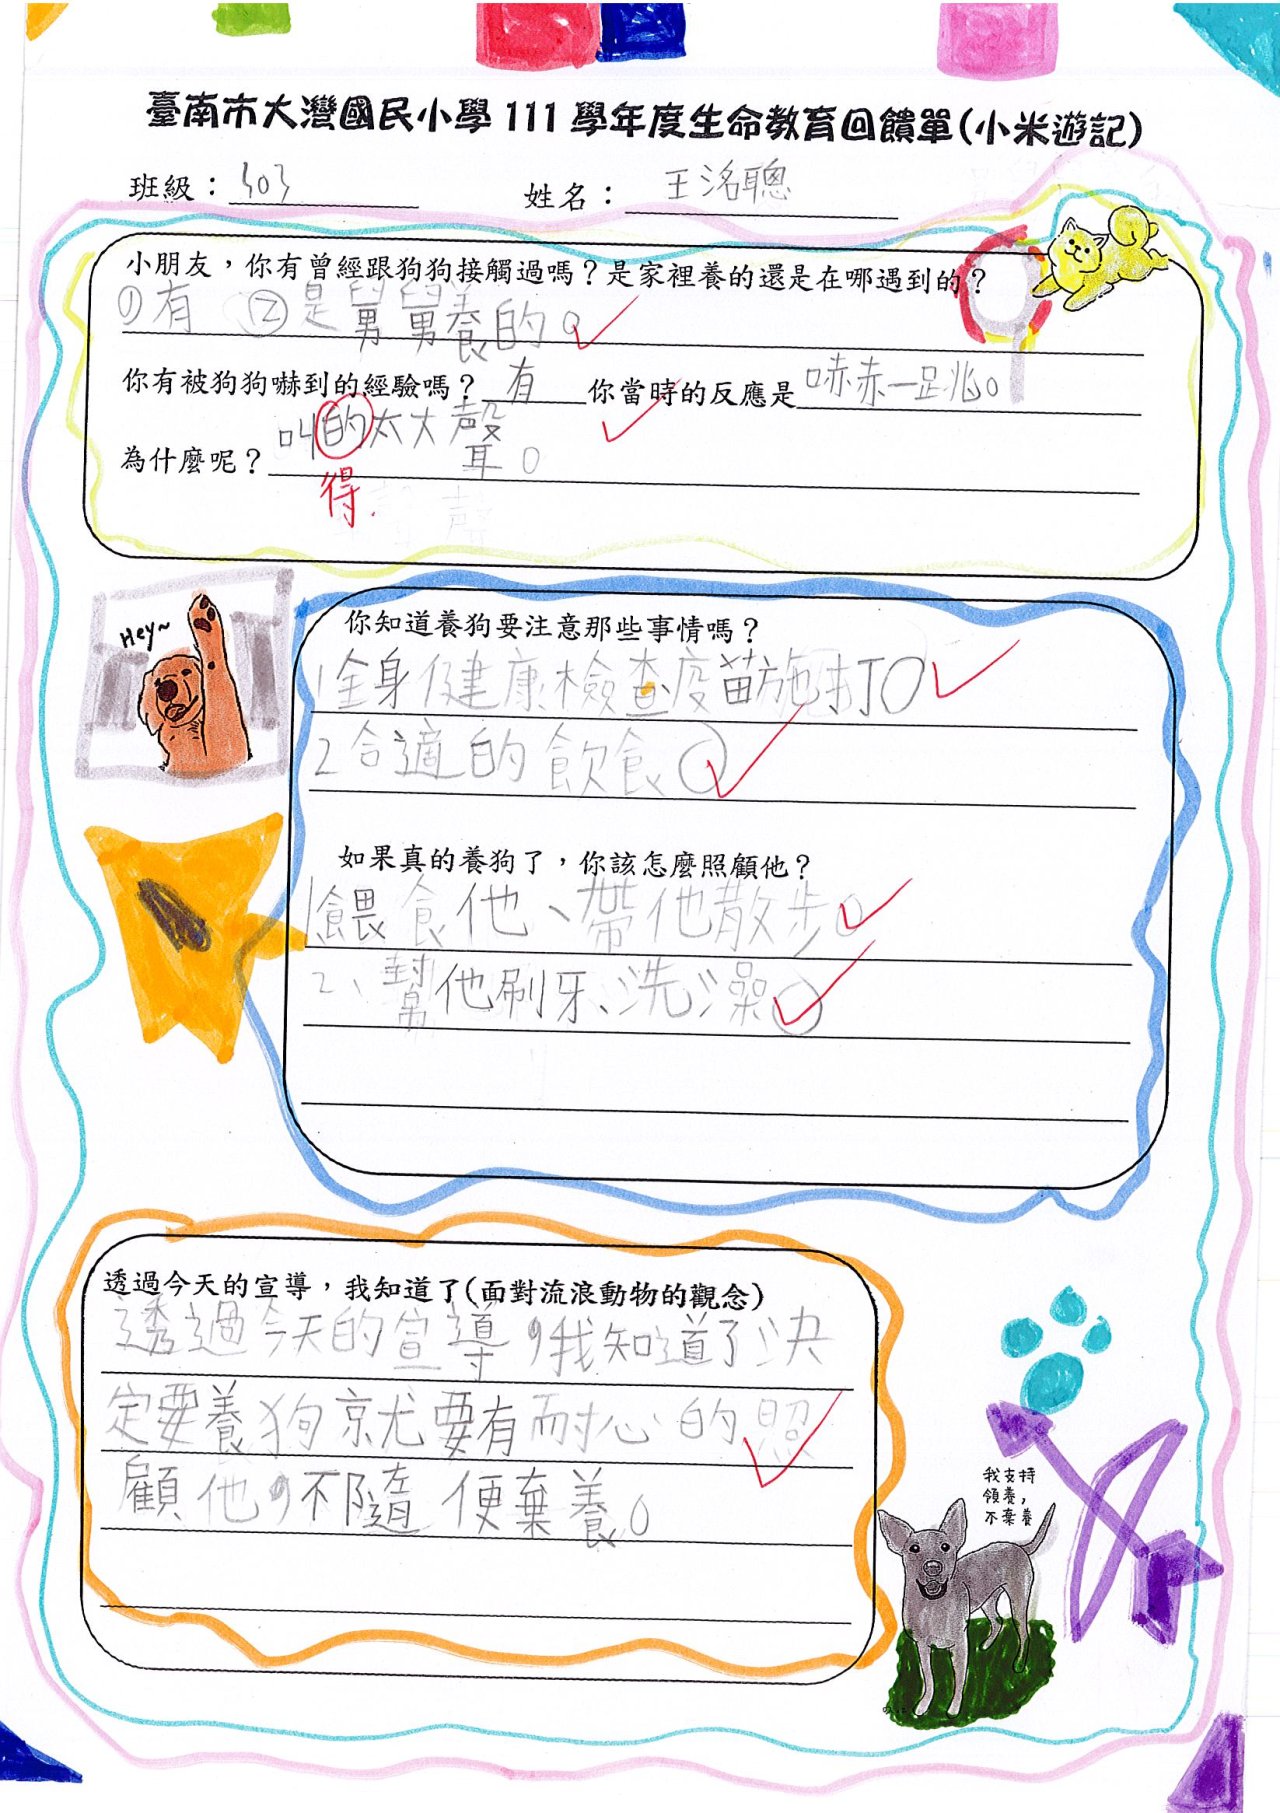 臺南市大灣國民小學111學年度生命教育回饋單(小米遊記)
班級：303 姓名：王洺聰
小朋友，你有曾經跟狗狗接觸過嗎？是家裡養的還是在哪遇到的？
①有 ②是舅舅養的。
你有被狗狗嚇到的經驗嗎？有 你當時的反應是嚇一跳。
為什麼呢？叫的太大聲。
得
Hey~
你知道養狗要注意那些事情嗎？
1全身健康檢查疫苗施打。
2合適的飲食。
如果真的養狗了，你該怎麼照顧他？
1餵食他、帶他散步。
2、幫他刷牙、洗澡。
透過今天的宣導，我知道了(面對流浪動物的觀念)
透過今天的宣導，我知道了決
定要養狗就要有耐心的照
顧他，不隨便棄養。
我支持
領養，
不棄養